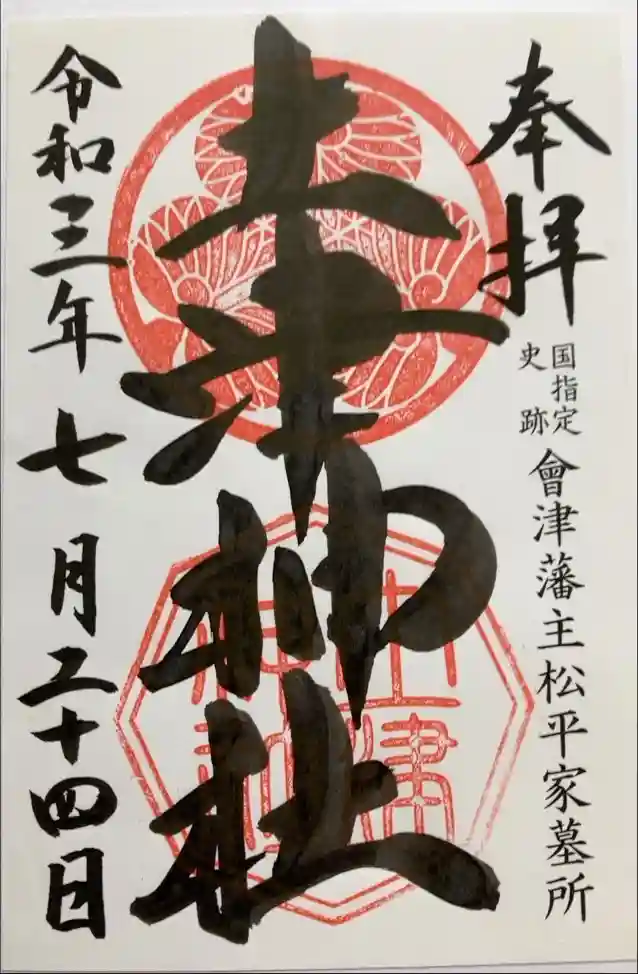 奉拝
国指定
史跡
會津藩主松平家墓所
土津神社
土津
神社
令和三年七月二十四日